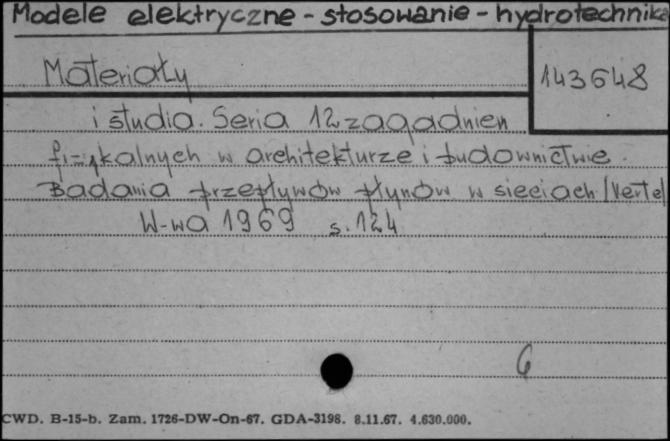 Modele elektryczne - stosowanie - hydrotechnika
Materiały
143648
i studia. Seria 12 zagadnien
fizykalnych w architekturze i budownictwie.
Badania przepływów płynów w sieciach /Verte/
W-wa 1969 s. 124
6
CWD. B-15-b. Zam. 1726-DW-On-67. GDA-3198. 8.11.67. 4.630.000.